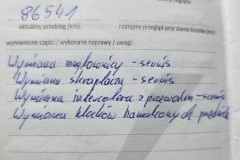 86541
aktualny przebieg (km):
następny przegląd przy stanie licznika
wymienione części / wykonane naprawy / uwagi:
Wymiana nagrzewnicy - serwis
Wymiana skraplacza - serwis
Wymiana intercoolera z przewodem - serwis
Wymiana klocków hamulcowych przednich